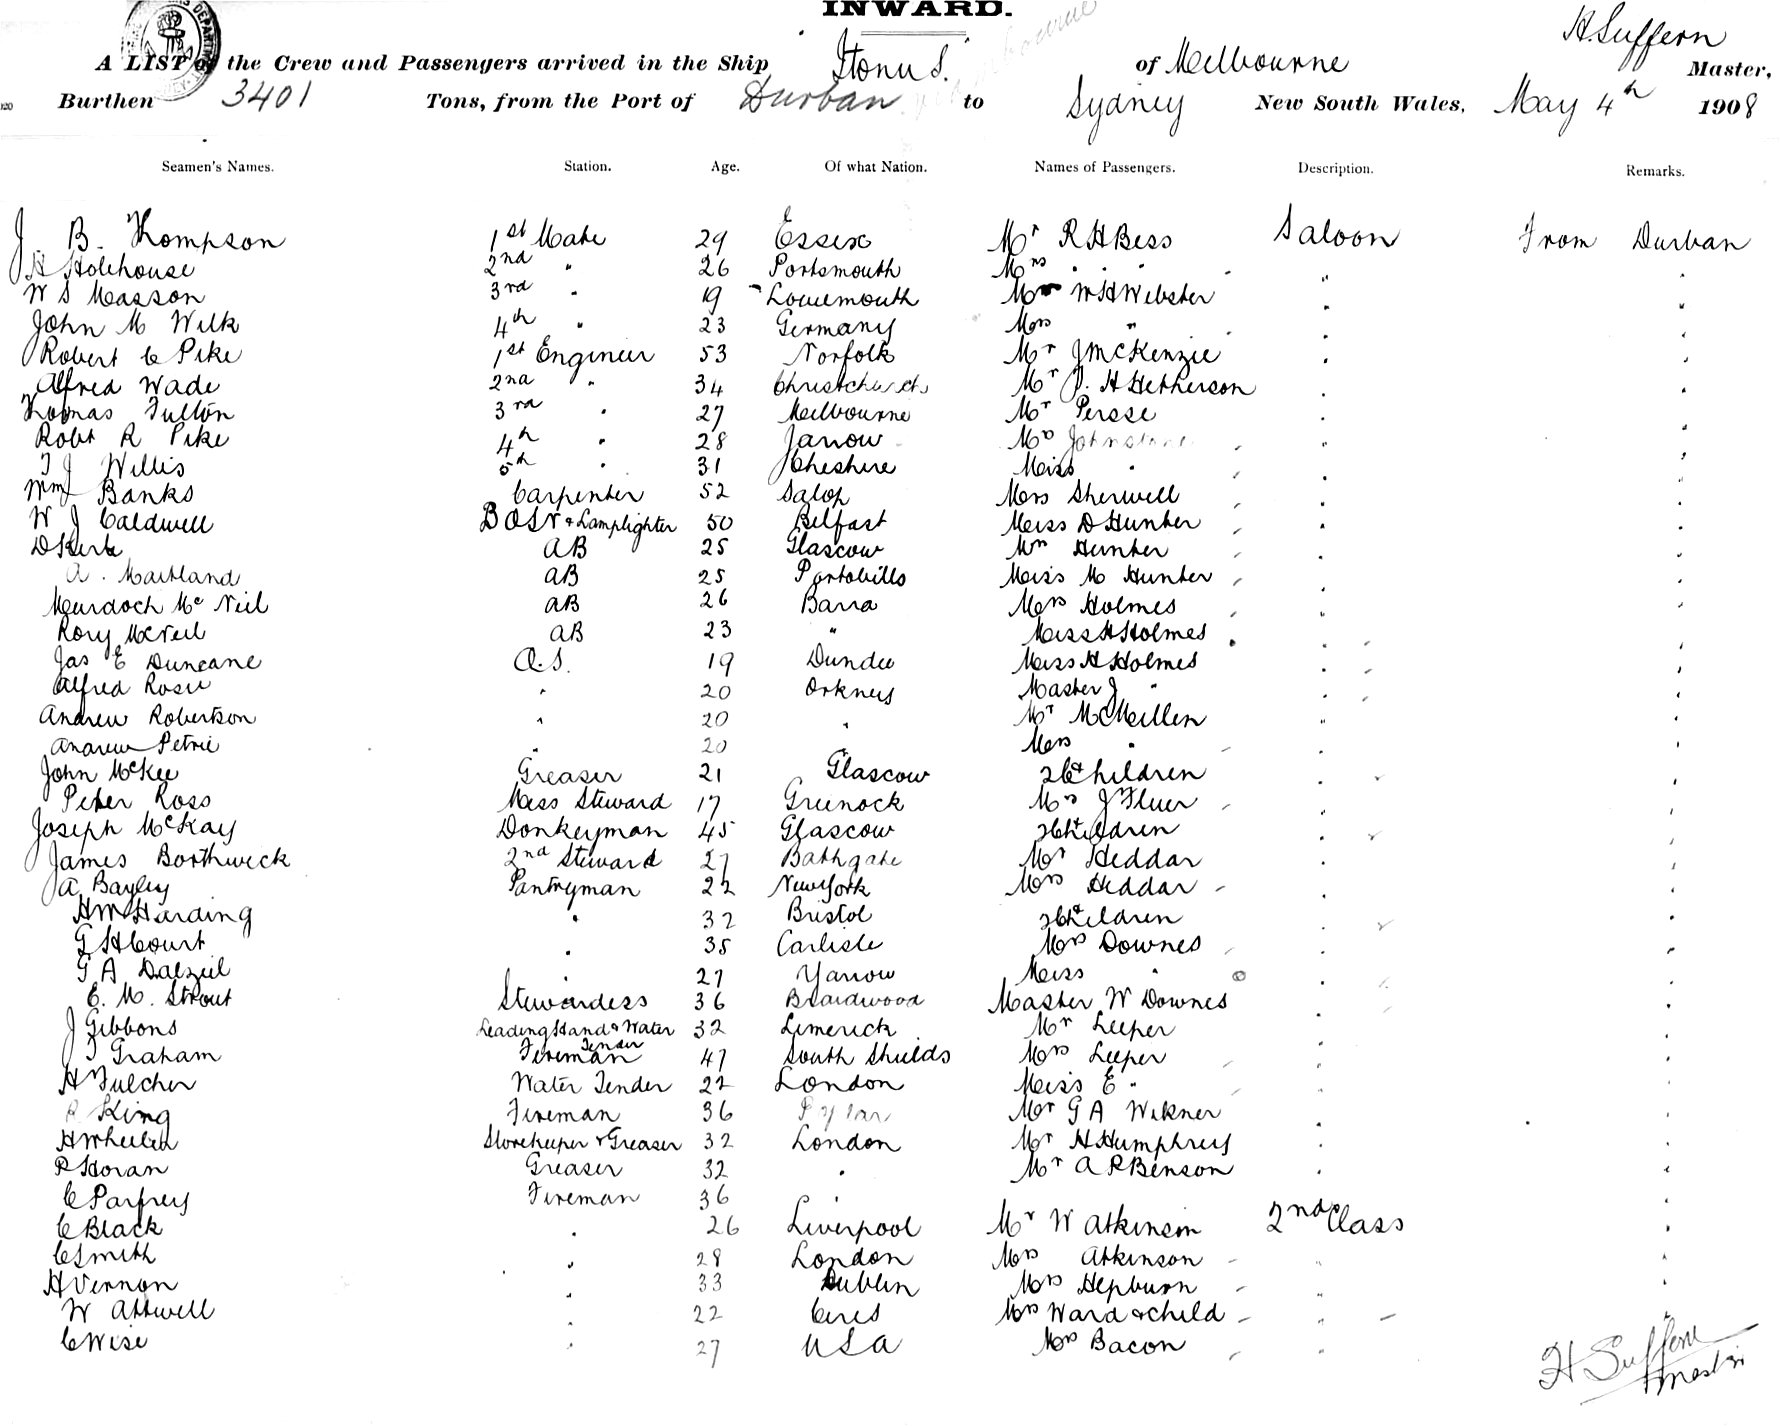 INWARD.
H. Suffern
A LIST of the Crew and Passengers arrived in the Ship Itonus. of Melbourne Master,
Burthen 3401 Tons, from the Port of Durban to Sydney New South Wales, May 4th 1908
Seamen's Names. Station. Age. Of what Nation. Names of Passengers. Description. Remarks.
J. B. Thompson 1st Mate 29 Essex Mr R H Bess Saloon From Durban
H Holehouse 2nd " 26 Portsmouth Mrs " " " " "
W S Masson 3rd " 19 Mr W H Webster " "
John M Wilk 4th " 23 Germany Mrs " " "
Robert C Pike 1st Engineer 53 Norfolk Mr J McKenzie " "
Alfred Wade 2nd " 34 Christchurch Mr J. H Hetherson " "
Thomas Fulton 3rd " 27 Melbourne Mr Persse " "
Robt R Pike 4th " 28 Jarrow Mrs Johnstone " "
T J Willis 5th " 31 Cheshire Miss " " "
Wm J Banks Carpenter 52 Salop Mrs Sherwell " "
W J Caldwell BOSN & Lamplighter 50 Belfast Miss D Hunter " "
D Kerk AB 25 Glascow Mrs Hunter " "
A. Maitland AB 25 Portobillo Miss M Hunter " "
Murdoch McNeil AB 26 Barra Mrs Holmes " "
Rory McNeil AB 23 " Miss H Holmes " "
Jas E Duncane O.S. 19 Dundee Miss H Holmes " "
Alfred Rosie " 20 Orkney Master J " " "
Andrew Robertson " 20 " Mr McMeillen " "
Andrew Petrie " 20 " Mrs " " "
John McKee Greaser 21 Glascow 2 Children " "
Peter Ross Mess Steward 17 Greenock Mrs J Fluer " "
Joseph McKay Donkeyman 45 Glascow 2 Children " "
James Borthwick 2nd Steward 27 Bathgate Mr Heddar " "
A Bayley Pantryman 22 New York Mrs Heddar " "
H W Harding " 32 Bristol 2 Children " "
G H Court " 35 Carlisle Mrs Downes " "
G A Dalzeil " 27 Yarrow Miss " " "
E. M. Strout Stewardess 36 Braidwood Master W Downes " "
J Gibbons Leading Hand & Water Tender 32 Limerick Mr Leeper " "
T Graham Fireman 47 South Shields Mrs Leeper " "
H Fulcher Water Tender 22 London Miss E " " "
R King Fireman 36 Mr G A Wikner " "
H Wheeler Storekeeper & Greaser 32 London Mr H Humphreys " "
P Horan Greaser 32 " Mr A R Benson " "
C Parfrey Fireman 36 " "
C Black " 26 Liverpool Mr W Atkinson 2nd Class "
C Smith " 28 London Mrs Atkinson " "
H Vernon " 33 Dublin Mrs Hepburn " "
W Attwell " 22 Ceres Mrs Ward & child " "
C Wise " 27 USA Mrs Bacon "
H Suffern
Master